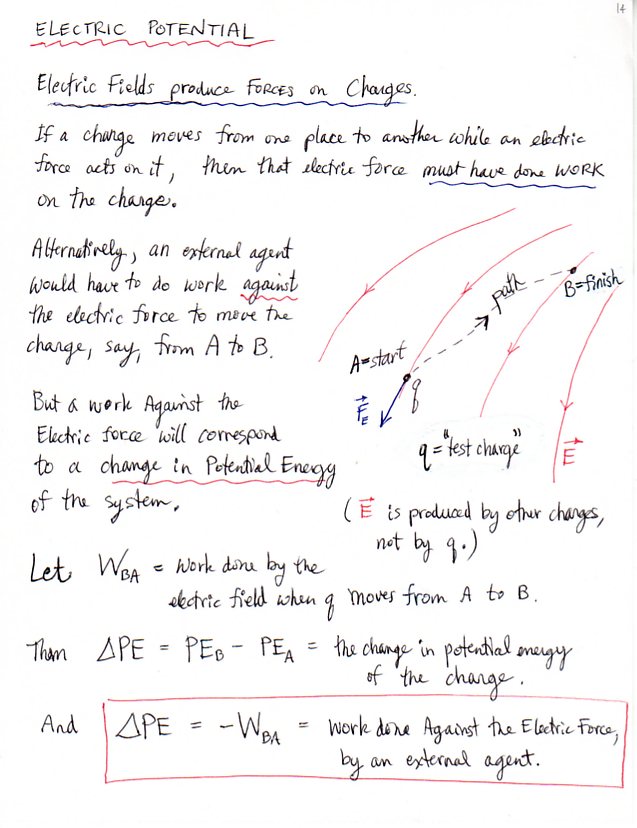 14
ELECTRIC POTENTIAL
Electric Fields produce FORCES on Charges.
If a charge moves from one place to another while an electric
force acts on it, then that electric force must have done WORK
on the charge.
Alternatively, an external agent
would have to do work against
the electric force to move the
charge, say, from A to B.
path
B=finish
A=start
q
F⃗E
But a work Against the
Electric force will correspond
to a change in Potential Energy
of the system.
q = "test charge"
E⃗
(E⃗ is produced by other charges,
not by q.)
Let WBA = work done by the
electric field when q moves from A to B.
Then ΔPE = PEB - PEA = the change in potential energy
of the charge.
And ΔPE = -WBA = work done Against the Electric Force,
by an external agent.